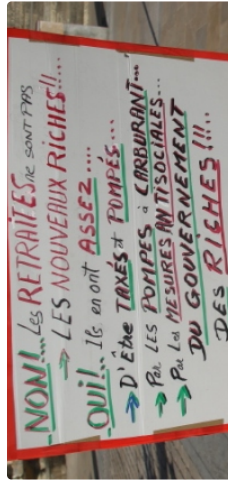 NON!.... Les RETRAITÉS ne SONT PAS
→ LES NOUVEAUX RICHES!!....
OUI!.. Ils en ont ASSEZ....
→ D'ÊTRE TAXÉS et POMPÉS...
→ Par LES POMPES à CARBURANT...
→ Par Les MESURES ANTISOCIALES...
DU GOUVERNEMENT
DES RICHES!!!..